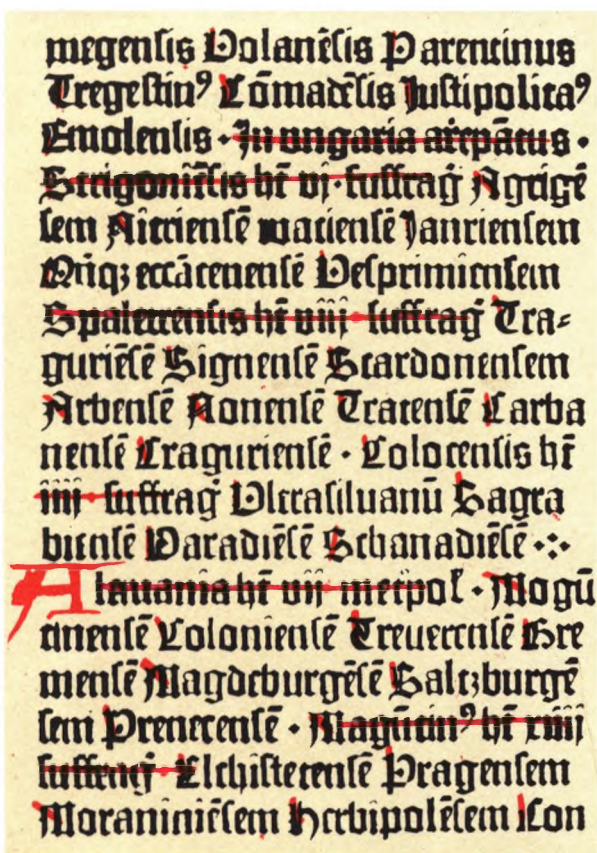 megensis Polanēsis Parentinus
Tregestinꝰ Cōmaclēsis Justipolitaꝰ
Emolensis · In ungaria arēpātus ·
Strigoniēsis hr̄ vj · suffraḡ Agrigē
sem Nitriensē watiensē Jauriensem
ecclācenensē Vesprimiensem
Spaleterensis hr̄ viij suffraḡ Tra⸗
guriēsē Signensē Scardonensem
Arbensē Nonensē Tratensē Carba
nensē Craguriensē · Colocensis hr̄
iiij suffraḡ Vltrasiluanū Sagra
biensē Waradiēsē Schanadiēsē ·:·
Alauania hr̄ vij metpol̄ · Mogū
tinensē Coloniensē Treuerensē Bre
mensē Magdeburgēsē Saltzburgē
sem Prenetensē · Magūtinꝰ hr̄ xiiij
suffraḡ · Elchistetensē Pragensem
Morauiniēsem Herbipolēsem Con